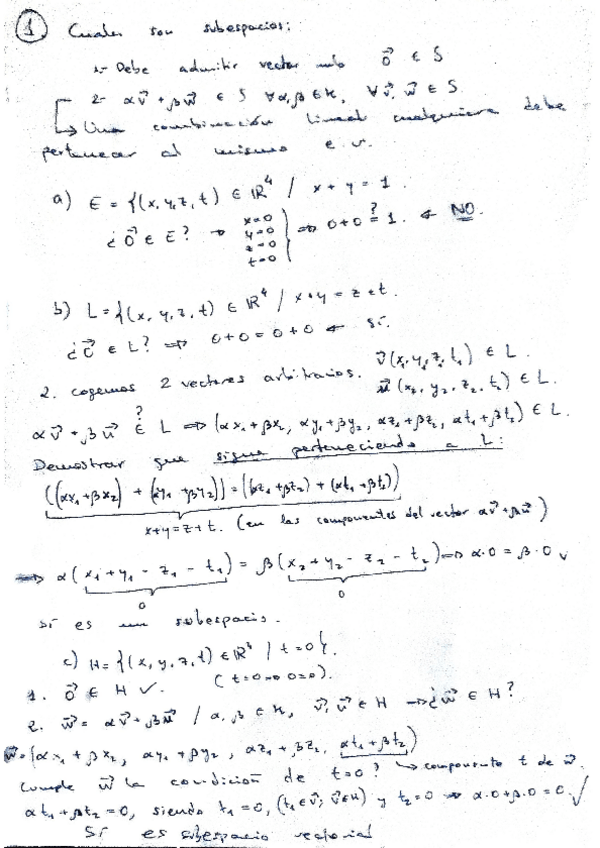 ① Cuales son subespacios:
1- Debe admitir vector nulo 0⃗ ∈ S
2- αv⃗ + βw⃗ ∈ S ∀α,β ∈ K, ∀v⃗, w⃗ ∈ S.
↳ Una combinación lineal cualquiera debe
pertenecer al mismo e.v.
a) E = {(x, y, z, t) ∈ ℝ⁴ / x + y = 1.
¿0⃗ ∈ E? ⇒ x=0 y=0 z=0 t=0 } ⇒ 0+0 =? 1. ← NO.
b) L = {(x, y, z, t) ∈ ℝ⁴ / x+y = z+t.
¿0⃗ ∈ L? ⇒ 0+0 = 0+0 ← Sí.
2. cogemos 2 vectores arbitrarios. v⃗(x₁, y₁, z₁, t₁) ∈ L.
u⃗(x₂, y₂, z₂, t₂) ∈ L.
αv⃗ + βu⃗ ∈? L ⇒ (αx₁+βx₂, αy₁+βy₂, αz₁+βz₂, αt₁+βt₂) ∈ L.
Demostrar que sigue perteneciendo a L:
((αx₁+βx₂) + (αy₁+βy₂)) = ((αz₁+βz₂) + (αt₁+βt₂))
x+y=z+t. (en las componentes del vector αv⃗+βu⃗)
⇒ α(x₁+y₁-z₁-t₁) = β(x₂+y₂-z₂-t₂) ⇒ α·0 = β·0 ✓
0 0
Sí es un subespacio.
c) H = {(x, y, z, t) ∈ ℝ³ / t=0}.
1. 0⃗ ∈ H ✓. (t=0 ⇒ 0=0).
2. w⃗ = αv⃗ + βu⃗ / α, β ∈ K, v⃗, u⃗ ∈ H ⇒ ¿w⃗ ∈ H?
w⃗=(αx₁+βx₂, αy₁+βy₂, αz₁+βz₂, αt₁+βt₂)
Cumple w⃗ la condición de t=0? ↳ componente t de w⃗.
αt₁+βt₂=0, siendo t₁=0, (t₁∈v⃗; v⃗∈H) y t₂=0 ⇒ α·0+β·0=0. ✓
Sí es subespacio vectorial